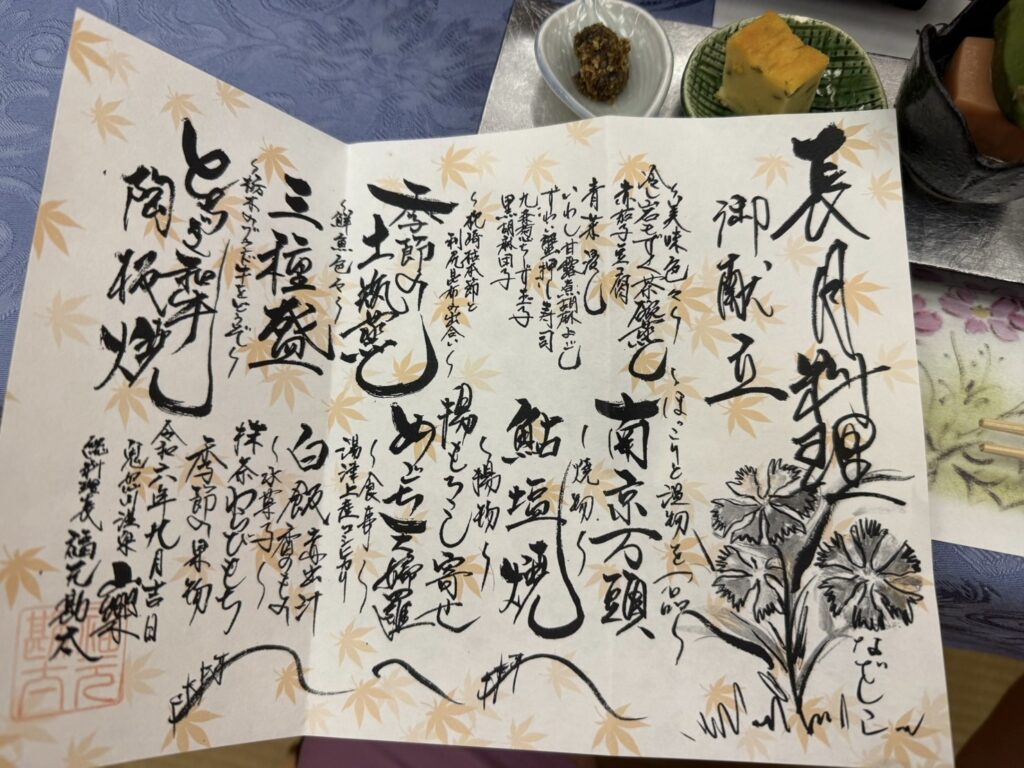 長月料理
御献立
～美味色々～
冷岩もずく茶碗蒸し
赤茄子豆腐
青菜浸し
いわし甘露煮胡麻よごし
ずわい蟹押し寿司
九番茄ちらず玉子
黒胡麻団子
～枕崎枯本節と
利尻昆布出合い～
季節の
土瓶蒸し
～鮮魚色々～
三種盛
～栃木のブランド牛をどうぞ～
とちぎ和牛
陶板焼
～ほっこりと温物を一品～
南京万頭
～焼物～
鮎塩焼
～揚物～
揚もろこし寄せ
めごち天婦羅
～食事～
湯津上産コシヒカリ
白飯 赤出汁 香のもの
～水菓子～
抹茶わらびもち
季節の果物
令和六年九月吉日
鬼怒川温泉 山楽
総料理長 福元勘太
なでしこ